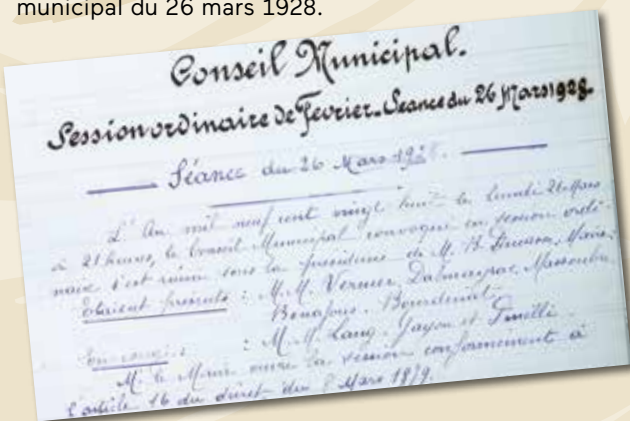 municipal du 26 mars 1928.
Conseil Municipal.
Session ordinaire de Fevrier. Seance du 26 Mars 1928.
Séance du 26 Mars 1928.
L'An mil neuf cent vingt huit le lundi 26 Mars
à 21 heures, le Conseil Municipal convoqué en session ordi-
naire s'est réuni sous la présidence de M. Maire.
Etaient présents : M.M. Vernier, Massoubre
Bourdenat
: M.M. Lang, Gayon et
M. le Maire ouvre la session conformément à
l'article 16 du décret du Mars